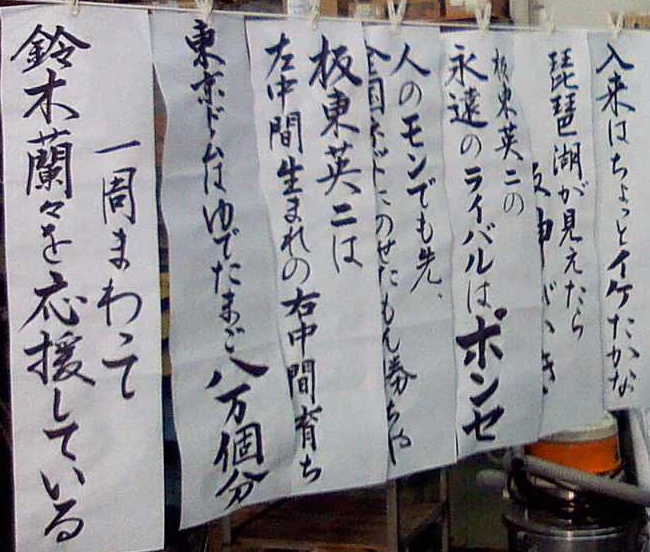 入来はちょっとイケたかな
琵琶湖が見えたら
板東英二の
永遠のライバルは
ポンセ
人のモンでも先、
全国ネットにのせたもん勝ちや
板東英二は
左中間生まれの右中間育ち
東京ドームはゆでたまご八万個分
一周まわって
鈴木蘭々を応援している